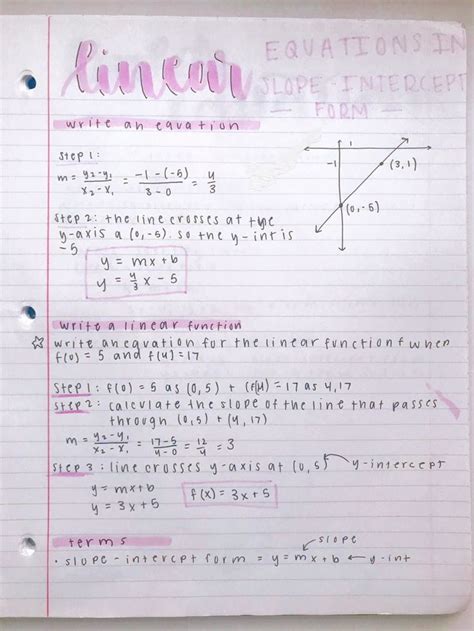 linear EQUATIONS IN
SLOPE-INTERCEPT
— FORM —
write an equation
Step 1:
m = y₂-y₁/x₂-x₁ = -1-(-5)/3-0 = 4/3
1
-1
(3,1)
(0,-5)
Step 2: the line crosses at the
y-axis a (0,-5). so the y-int is
-5
y = mx+b
y = 4/3 x - 5
write a linear function
☆ write an equation for the linear function f when
f(0) = 5 and f(4)=17
Step 1: f(0) = 5 as (0,5) + (f(4) = 17 as 4,17
Step 2: calculate the slope of the line that passes
through (0,5) + (4,17)
m = y₂-y₁/x₂-x₁ = 17-5/4-0 = 12/4 = 3
Step 3: line crosses y-axis at (0,5) ← y-intercept
y = mx+b
y = 3x+5
f(x) = 3x+5
terms
slope
· slope-intercept form = y = mx+b ← y-int